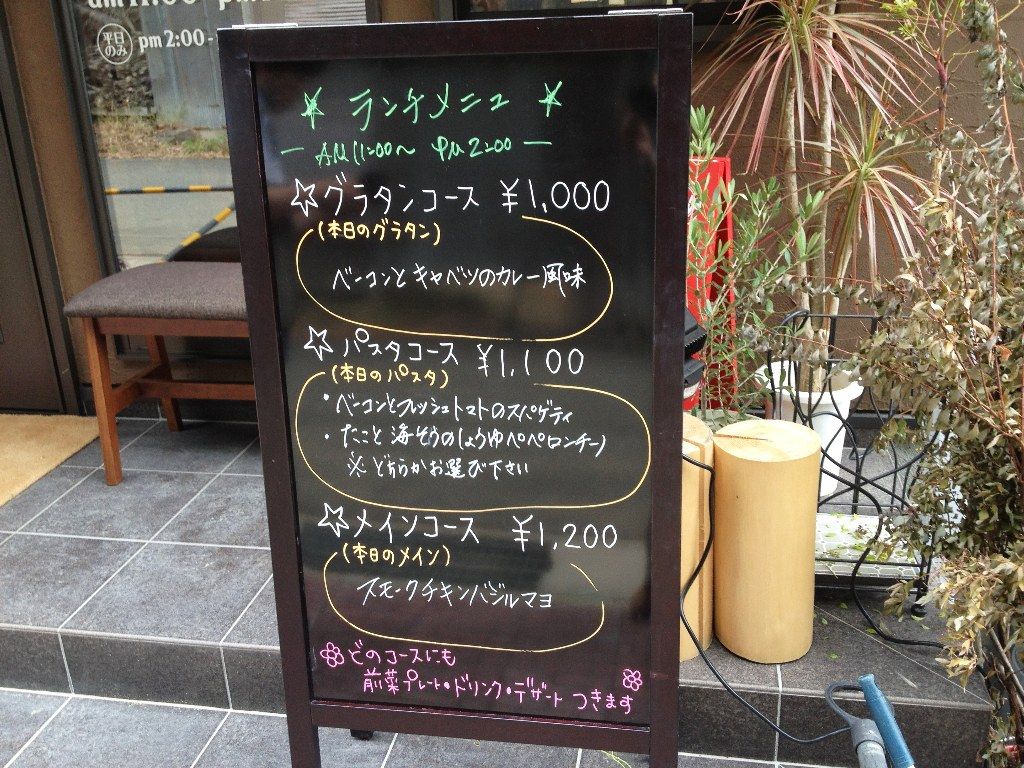 平日のみ pm 2:00 -
☆ ランチメニュー ☆
— AM 11:00〜 PM 2:00 —
☆グラタンコース ¥1,000
(本日のグラタン)
ベーコンとキャベツのカレー風味
☆パスタコース ¥1,100
(本日のパスタ)
・ベーコンとフレッシュトマトのスパゲティ
・たこと海そうのしょうゆペペロンチーノ
※どちらかお選び下さい
☆メインコース ¥1,200
(本日のメイン)
スモークチキンバジルマヨ
どのコースにも
前菜プレート・ドリンク・デザート つきます